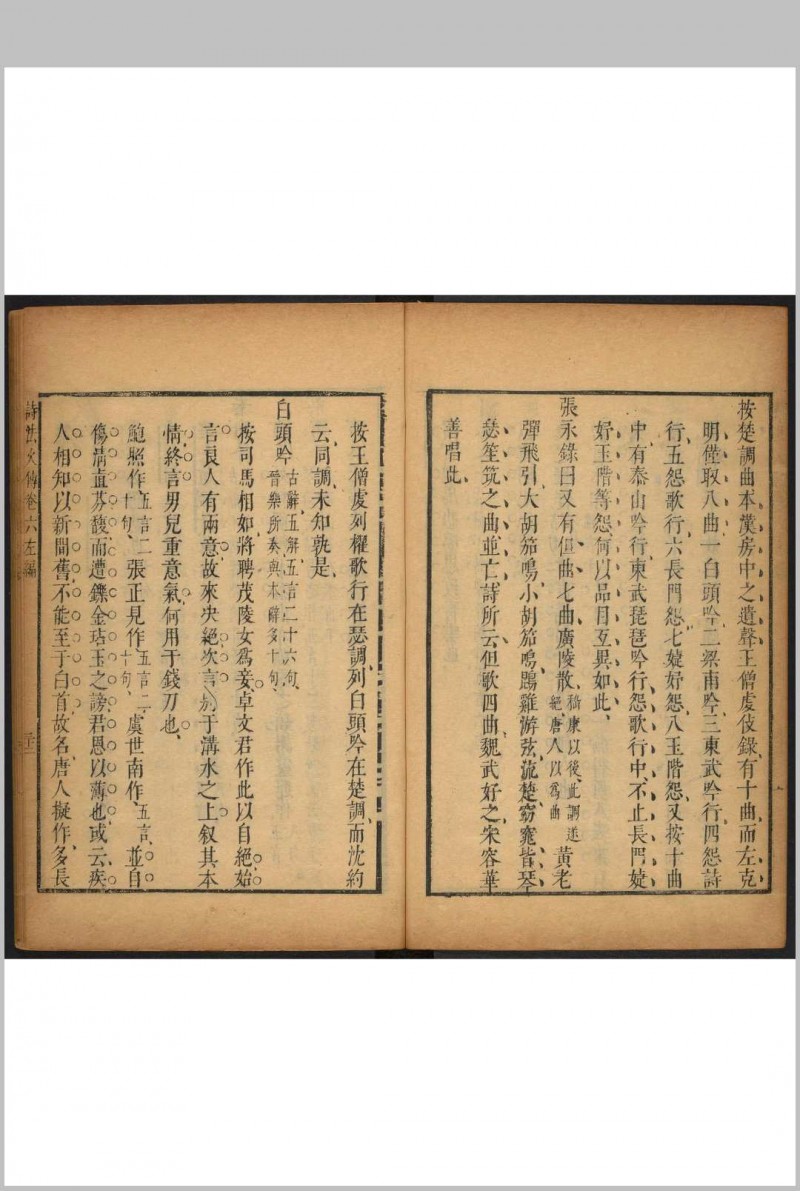 按楚調曲本漢房中之遺聲王僧虔伎錄有十曲而左克
明僅取八曲一白頭吟二梁甫吟三東武吟行四怨詩
行五怨歌行六長門怨七婕妤怨八玉階怨又按十曲
中有泰山吟行東武琵琶吟行怨歌行中不止長門婕
妤玉階等怨何以品目互異如此
張永錄曰又有但曲七曲廣陵散嵇康以後此調遂
絕唐人以爲曲黃老
彈飛引大胡笳鳴小胡笳鳴鵾雞游弦流楚窈窕皆琴
瑟笙筑之曲並亡詩所云但歌四曲魏武好之宋容華
善唱此
按王僧虔列櫂歌行在瑟調列白頭吟在楚調而沈約
云同調未知孰是
白頭吟古辭五解五言二十六句
晉樂所奏與本辭多十句
按司馬相如將聘茂陵女爲妾卓文君作此以自絕始
言良人有兩意故來决絕次言別于溝水之上叙其本
情終言男兒重意氣何用于錢刀也
鮑照作五言二
十句張正見作五言二
十句虞世南作五言並自
傷淸直芬馥而遭鑠金玷玉之謗君恩以薄也或云疾
人相知以新間舊不能至于白首故名唐人擬作多長
詩法火傳卷六左編